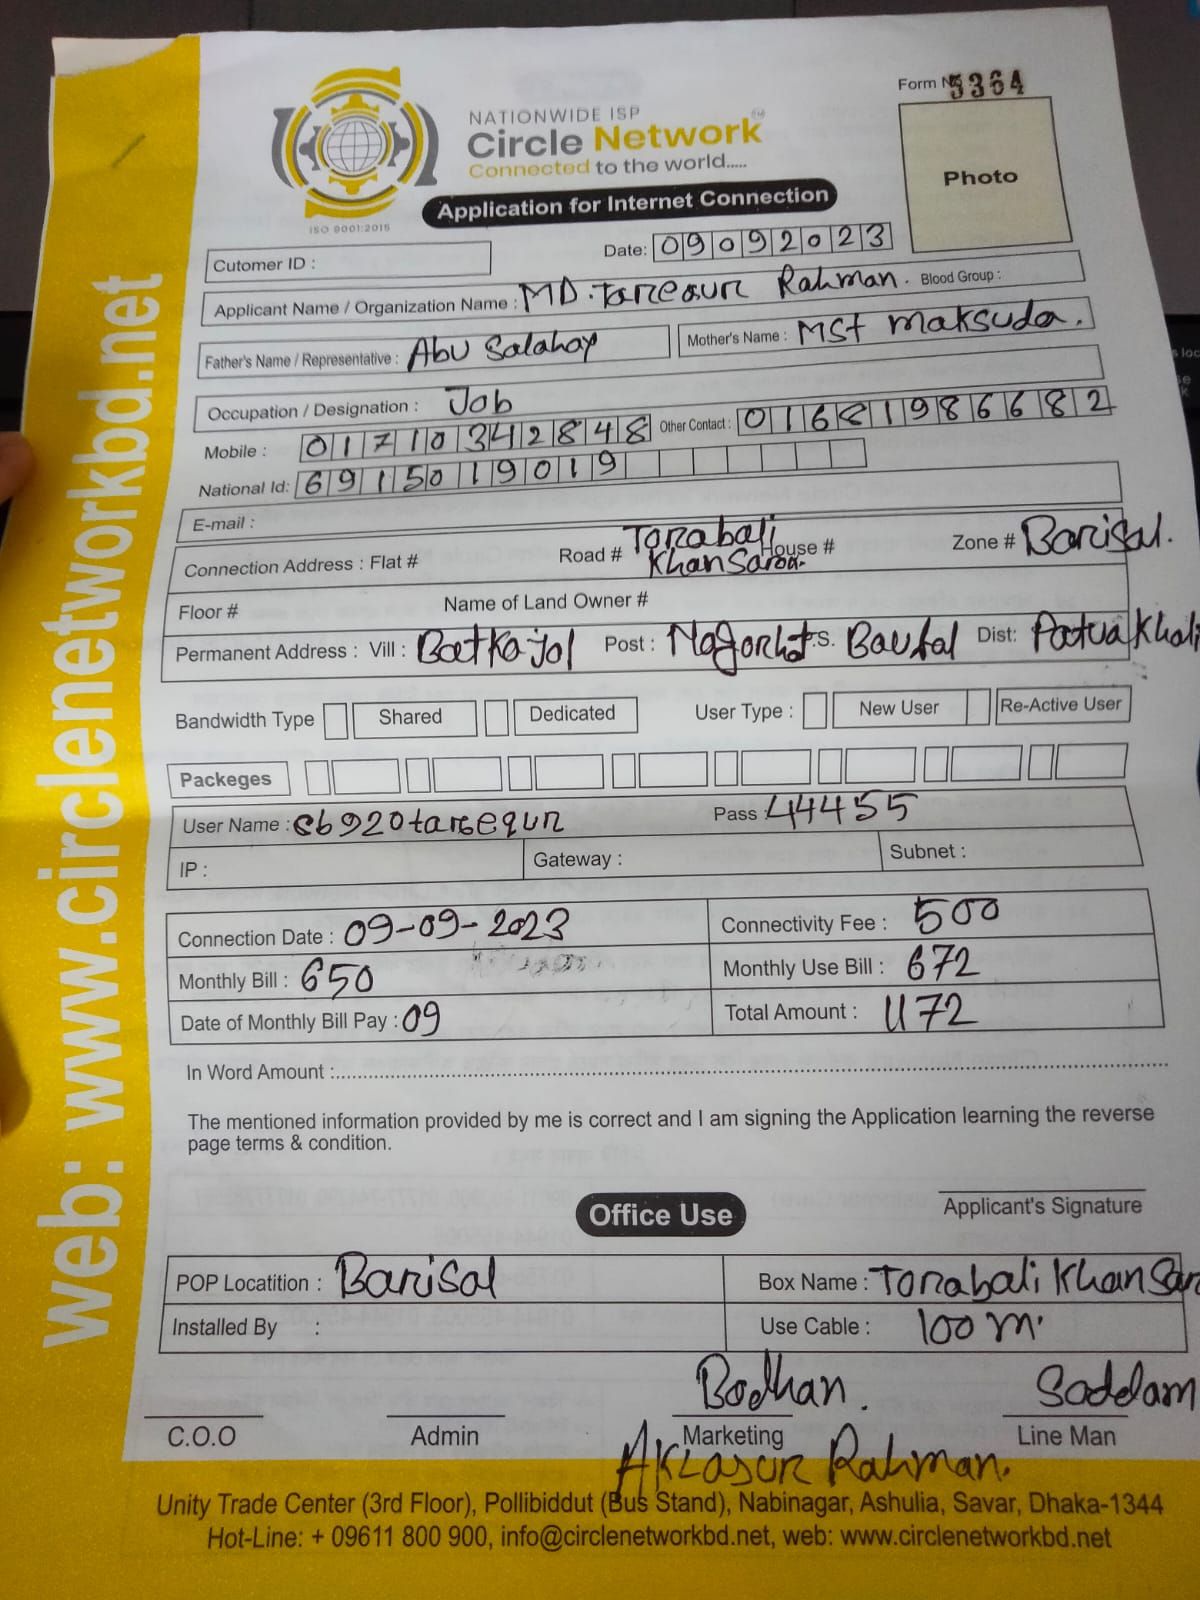 Form No 5364
NATIONWIDE ISP
Circle Network
Connected to the world.....
ISO 9001:2015
Application for Internet Connection
Photo
Cutomer ID :
Date: 09092023
Applicant Name / Organization Name : MD. Tareaur Rahman. Blood Group :
Father's Name / Representative : Abu Salahay
Mother's Name : MSt maksuda.
Occupation / Designation : Job
Mobile : 01710342848 Other Contact : 01681986682
National Id: 6915019019
E-mail :
Connection Address : Flat # Road # Torabali Khan Sarok House # Zone # Barisal.
Floor # Name of Land Owner #
Permanent Address : Vill : Batkajol Post : Nagorhat P.S. Baufal Dist: Patuakhali
Bandwidth Type Shared Dedicated User Type : New User Re-Active User
Packeges
User Name : cb920tarequr Pass : 44455
IP : Gateway : Subnet :
Connection Date : 09-09-2023 Connectivity Fee : 500
Monthly Bill : 650 Monthly Use Bill : 672
Date of Monthly Bill Pay : 09 Total Amount : 1172
In Word Amount :
The mentioned information provided by me is correct and I am signing the Application learning the reverse
page terms & condition.
Applicant's Signature
Office Use
POP Locatition : Barisal Box Name : Torabali Khan Sar
Installed By : Use Cable : 100 m.
Bodhan. Saddam
C.O.O Admin Marketing Line Man
Aklasur Rahman.
Unity Trade Center (3rd Floor), Pollibiddut (Bus Stand), Nabinagar, Ashulia, Savar, Dhaka-1344
Hot-Line: + 09611 800 900, info@circlenetworkbd.net, web: www.circlenetworkbd.net
web: www.circlenetworkbd.net